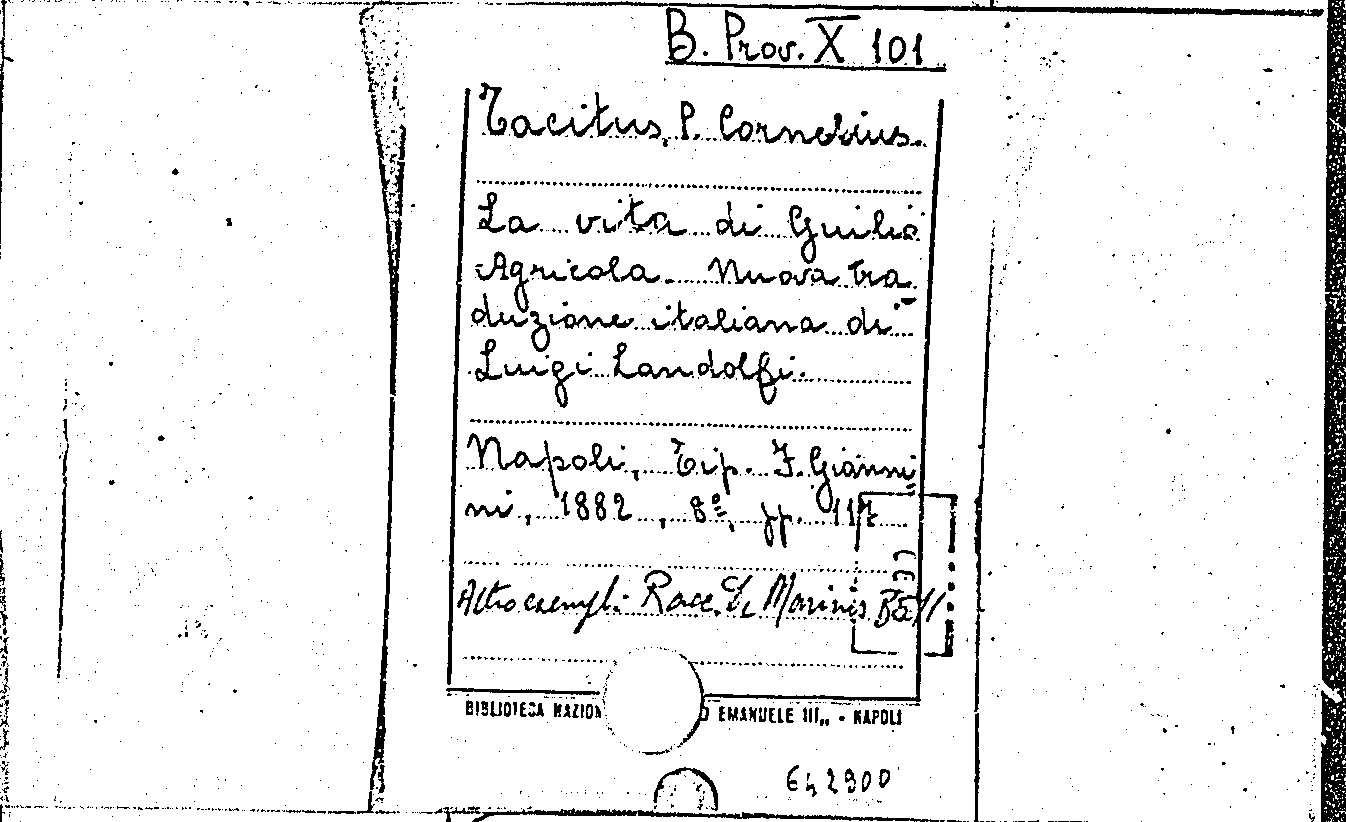 B. Prov. X 101
Tacitus, P. Cornelius.
La vita di Guilio
Agricola. Nuova tra
duzione italiana di
Luigi Landolfi.
Napoli, Tip. F. Gianni
ni, 1882, 8º, pp. 117
Altro esempl: Racc. De Marinis B
BIBLIOTECA NAZION O EMANUELE III„ - NAPOLI
642900